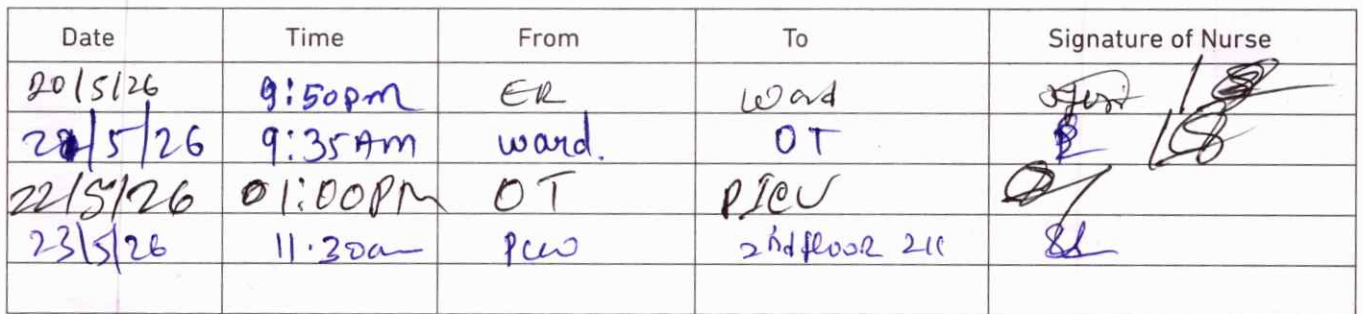 Date Time From To Signature of Nurse
20/5/26 9:50pm ER Ward
5/26 9:35AM ward. OT
22/5/26 01:00PM OT PICU
23/5/26 11.30am 2nd floor 211